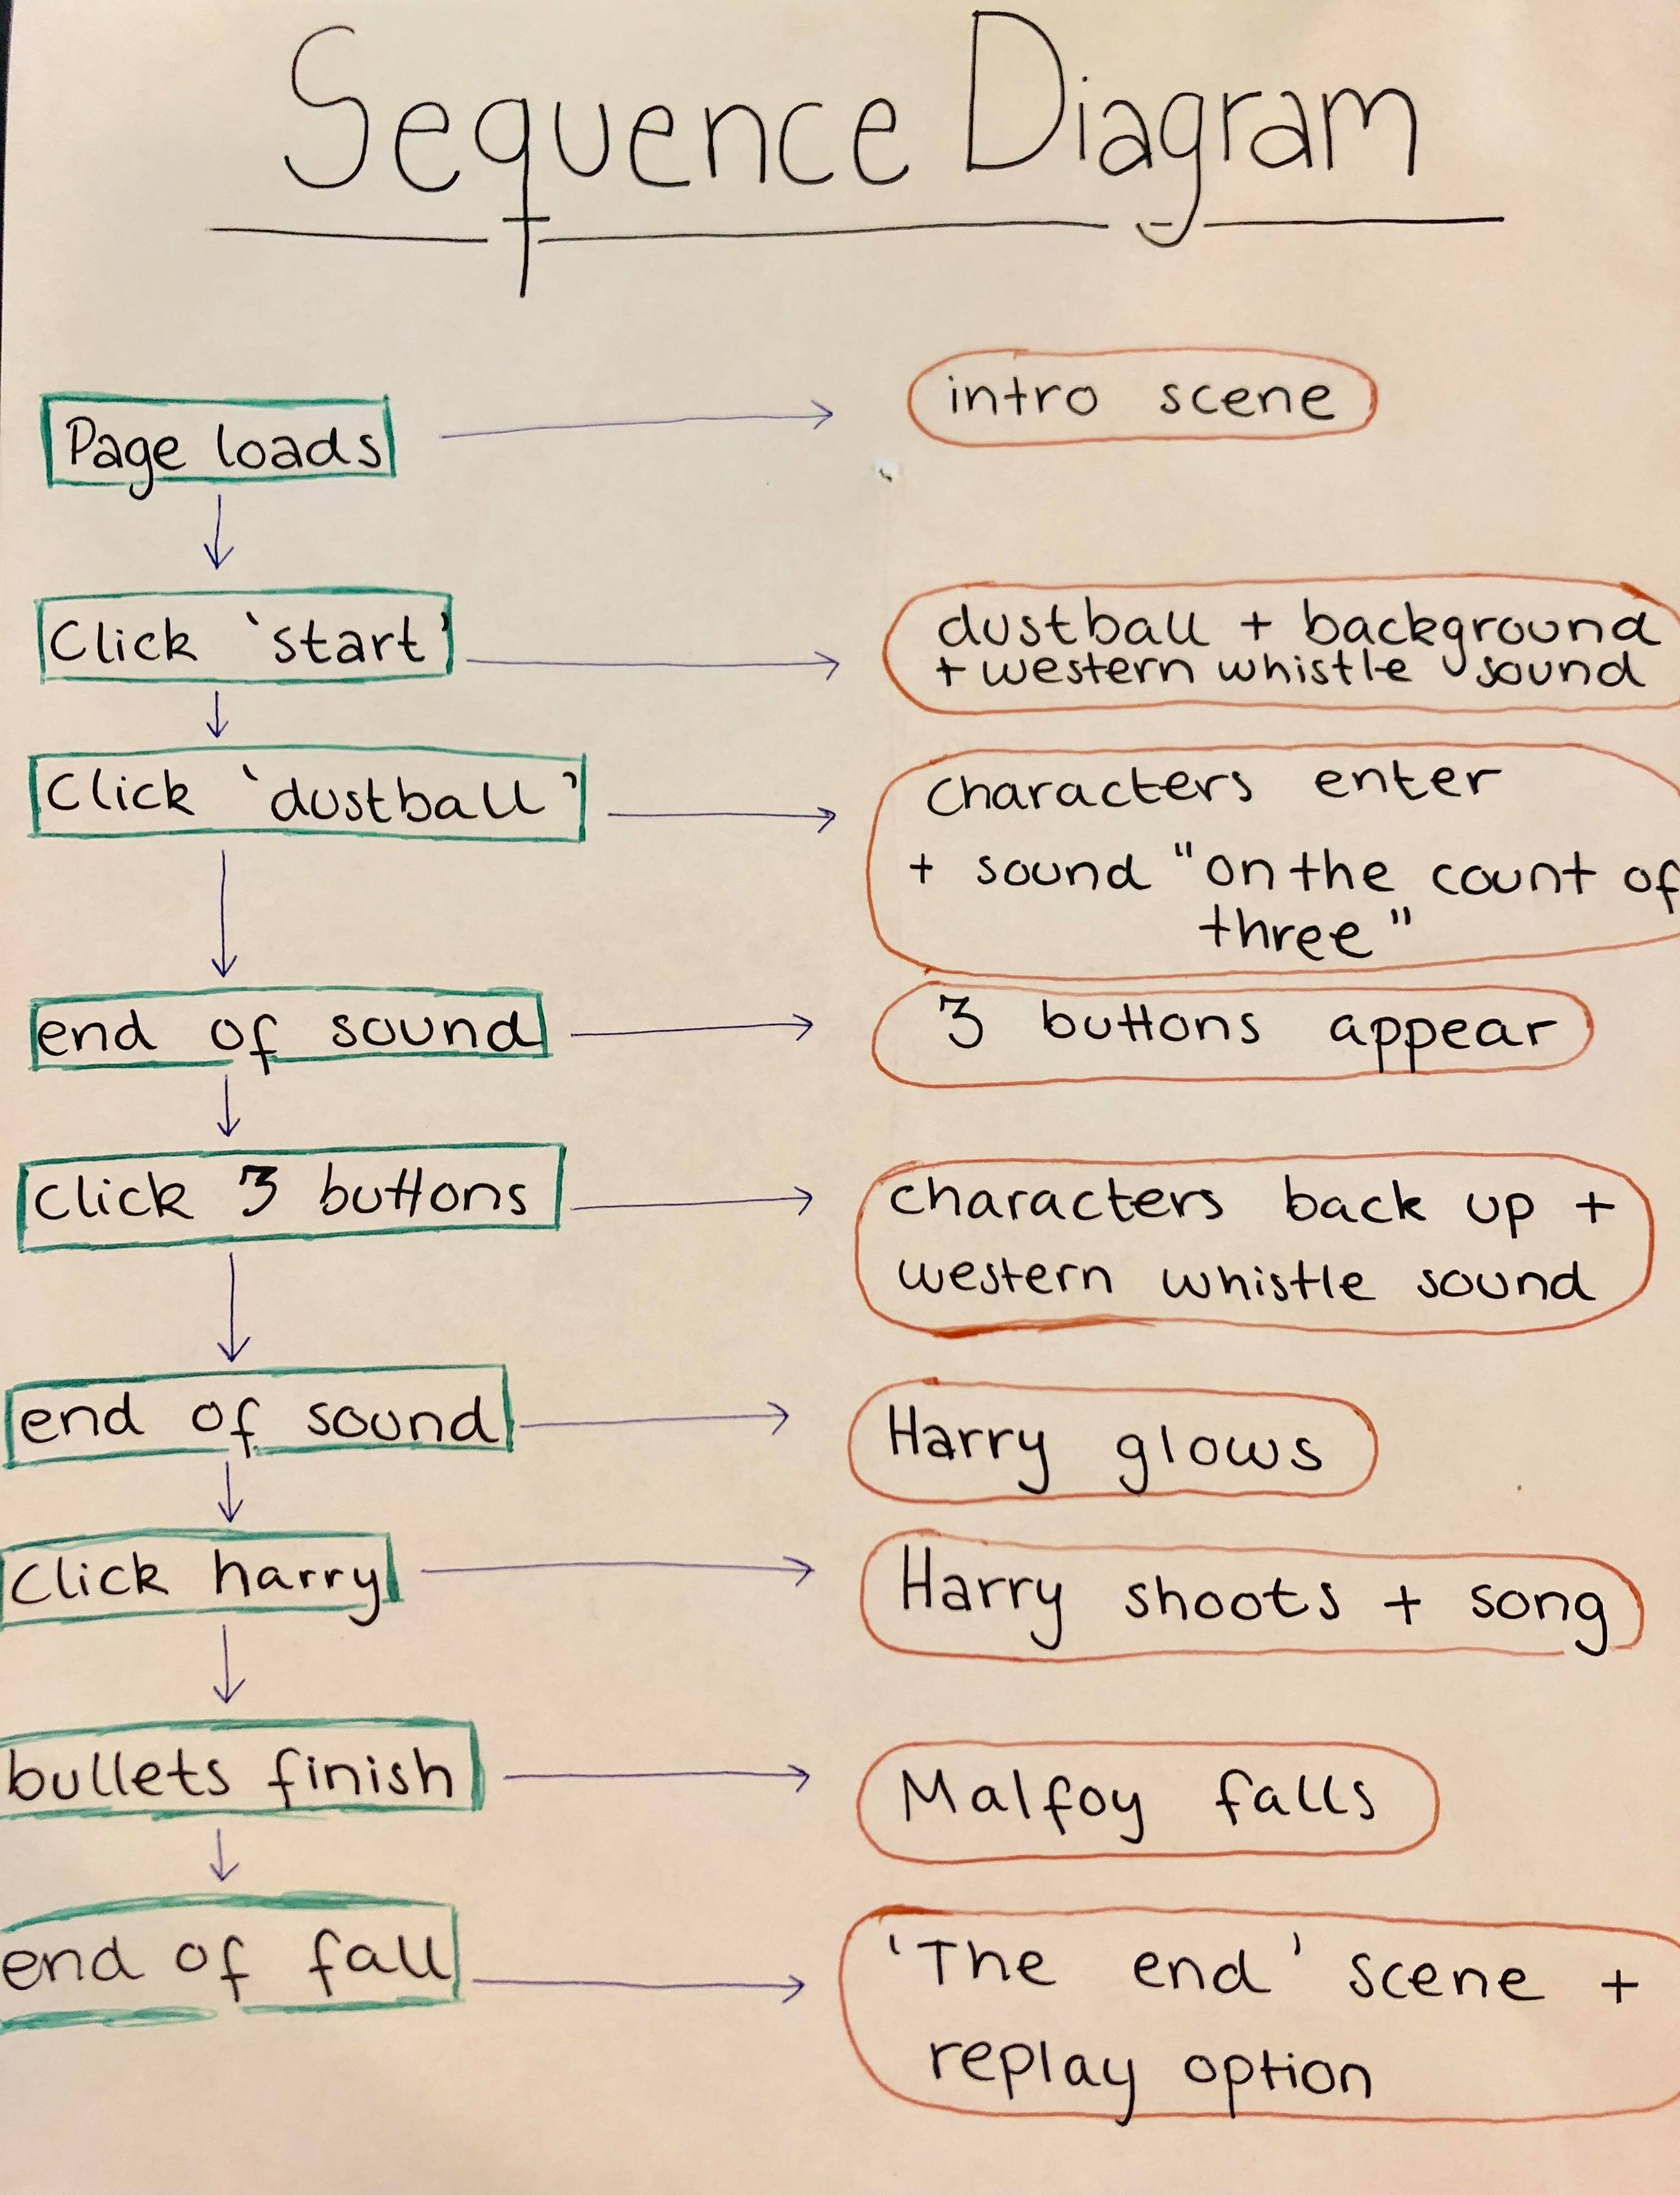 Sequence Diagram
Page loads
intro scene
Click 'start'
dustball + background
+ western whistle sound
Click 'dustball'
Characters enter
+ sound "on the count of
three"
end of sound
3 buttons appear
click 3 buttons
characters back up +
western whistle sound
end of sound
Harry glows
Click harry
Harry shoots + song
bullets finish
Malfoy falls
end of fall
'The end' scene +
replay option